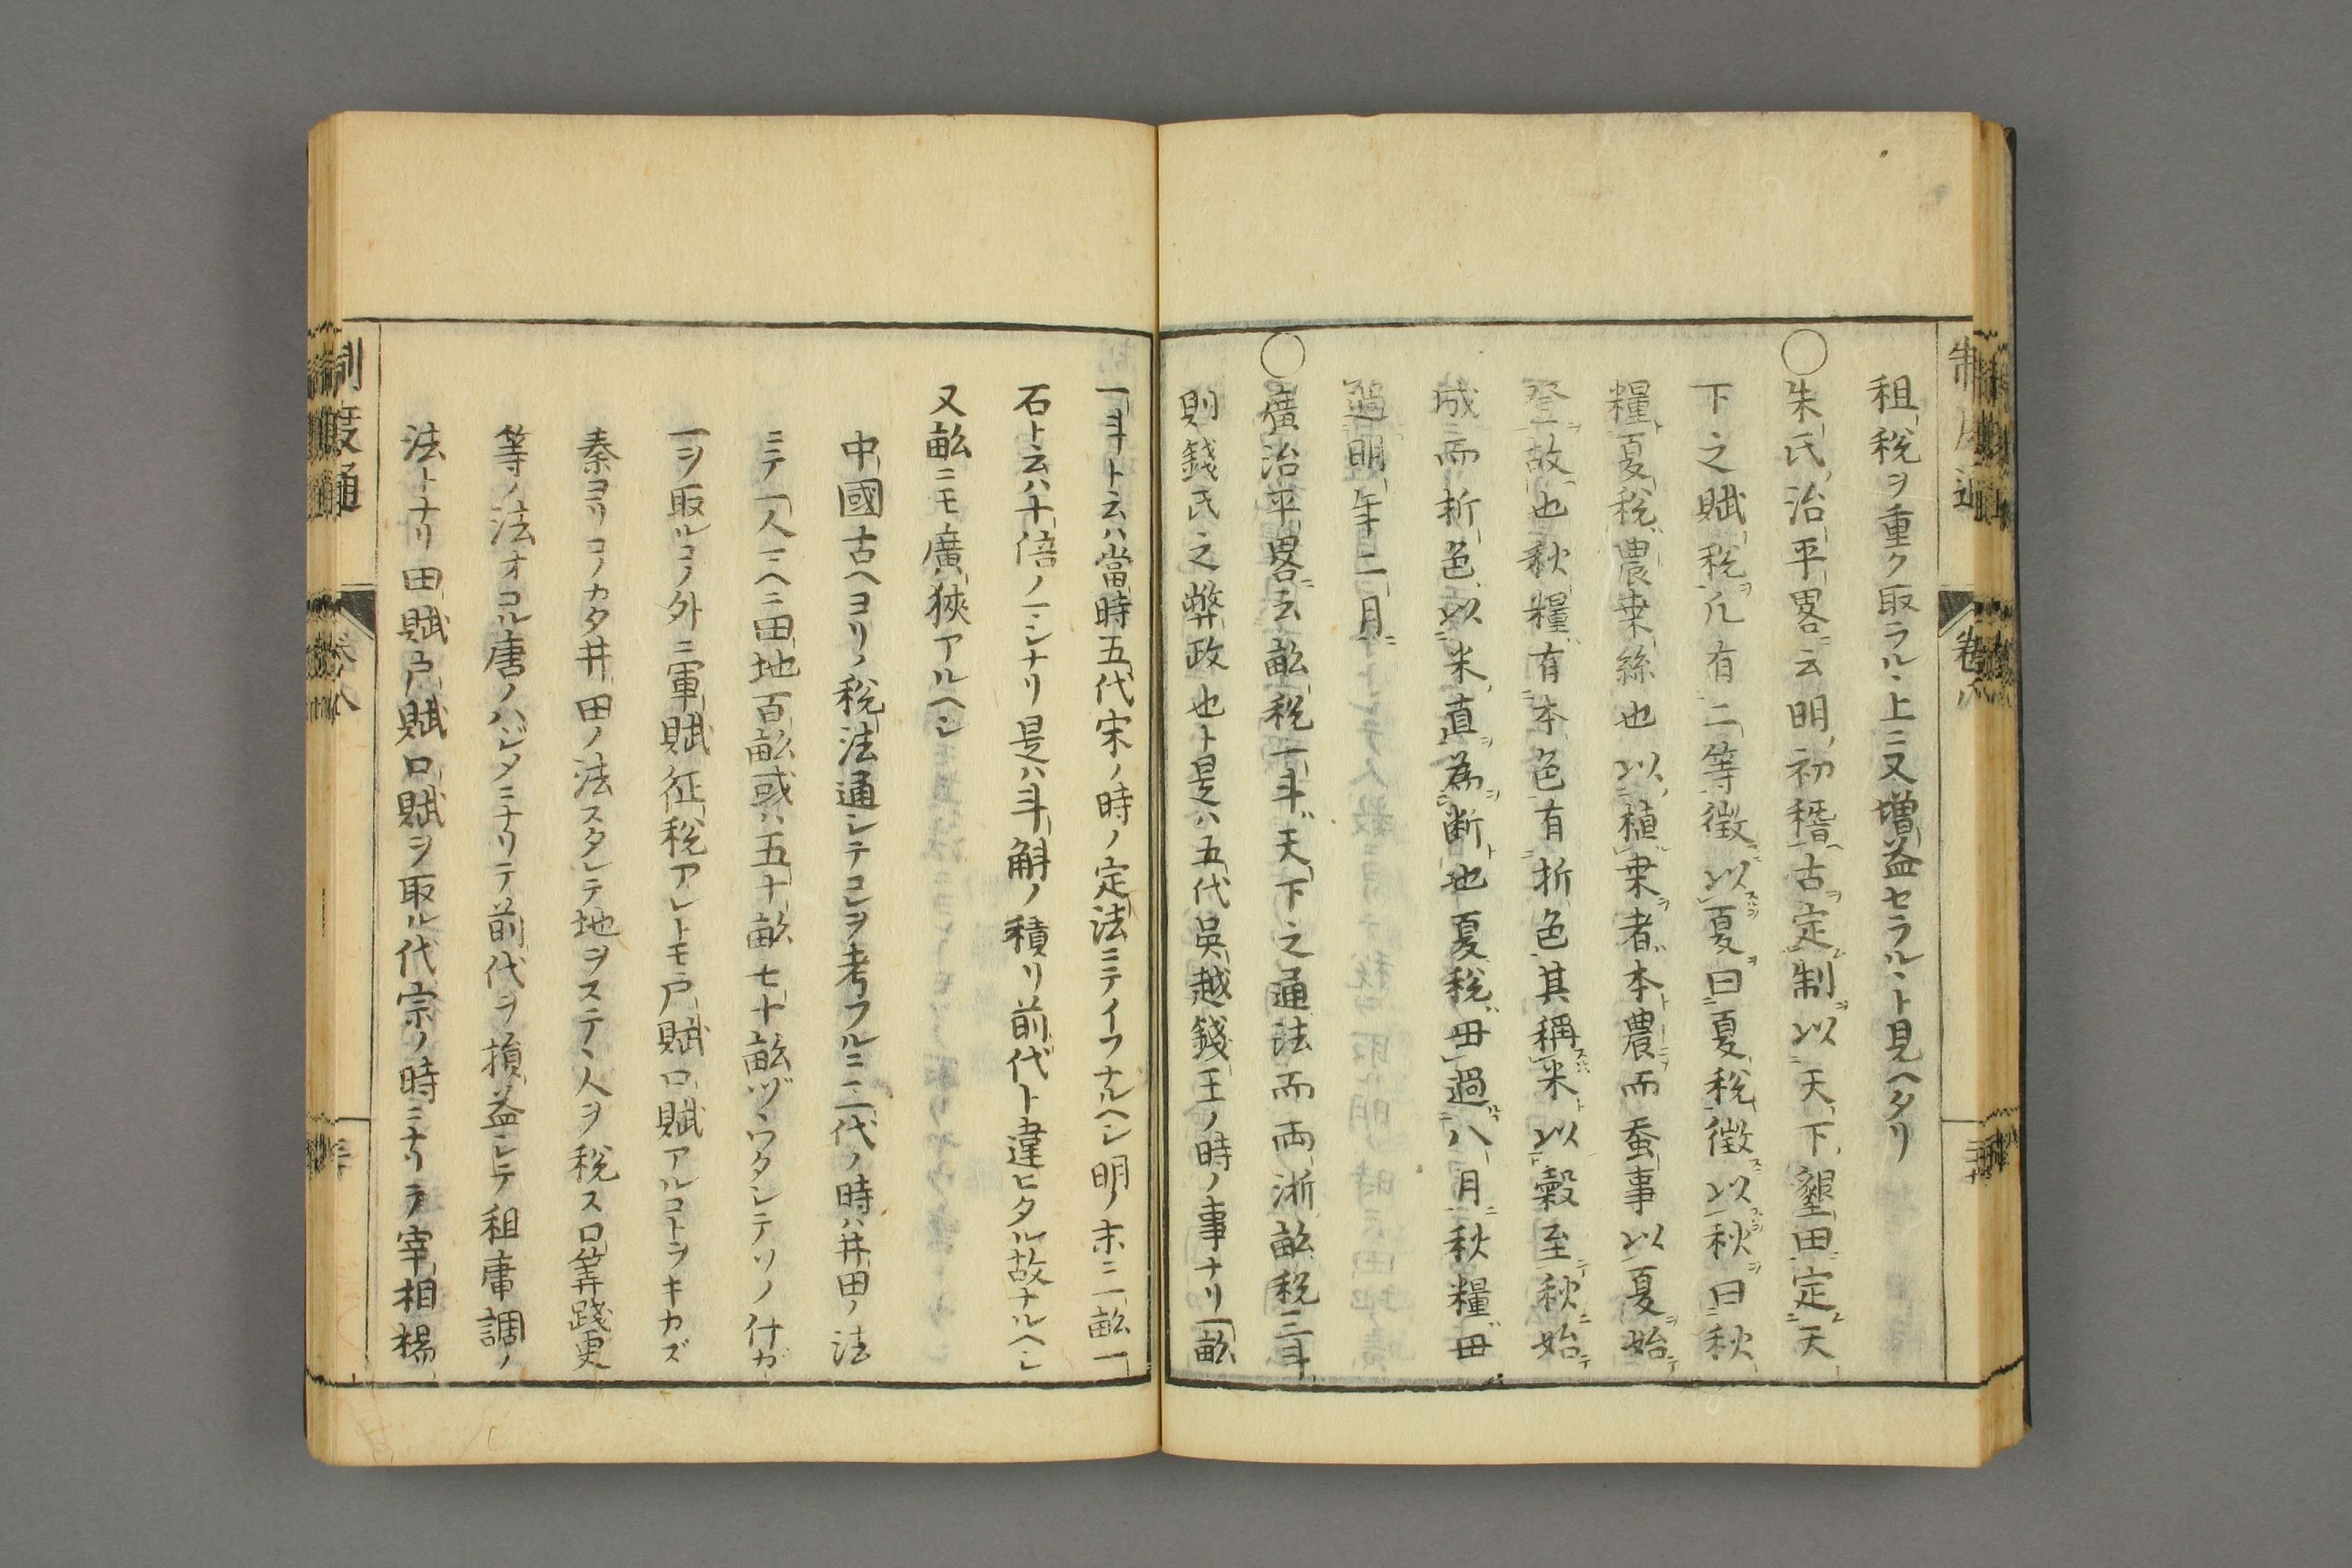 租税ヲ重ク取ラル上ニ又増益セラルヽト見ヘタリ
○朱氏治平畧ニ云明初稽古ヲ定制ヲ以天下墾田定天
下之賦税ヲ凡有二等徴以夏ヲ曰夏税徴以秋ヲ曰秋
糧ト夏税農桒絲也以植桒ヲ者本農而蚕事以夏ヲ始テ
登ヲ故也秋糧有本色有折色其稱米ト以穀至テ秋ニ始テ
成ニ而折色以米直ヲ為断ト也夏税毋過八月ニ秋糧毋
過明年二月ニ
○廣治平畧ニ云畝税一斗天下之通法而両浙畝税三斗
則錢氏之弊政也ト是ハ五代呉越錢王ノ時ノ事ナリ一畝
一斗ト云ハ當時五代宋ノ時ノ定法ニテイフナルヘシ明ノ末ニ一畝一
石ト云ハ十倍ノコトナリ是ハ斗斛ノ積リ前代ト違ヒタル故ナルヘシ
又畝ニモ廣狹アルヘシ
中國古ヘヨリノ税法通シテコレヲ考フルニ三代ノ時ハ井田ノ法
ニテ一人マヘニ田地百畝或ハ五十畝七十畝ヅヽワタシテソノ什ガ
一ヲ取ルコノ外ニ軍賦征税アレトモ戸賦口賦アルコトヲキカズ
秦ヨリコノカタ井田ノ法スタレテ地ヲステヽ人ヲ税ス口筭踐更
等ノ法オコル唐ノハジメニナリテ前代ヲ損益シテ租庸調ノ
法トナリ田賦戸賦口賦ヲ取ル代宗ノ時ニナリテ宰相楊
制度通
卷八
三十